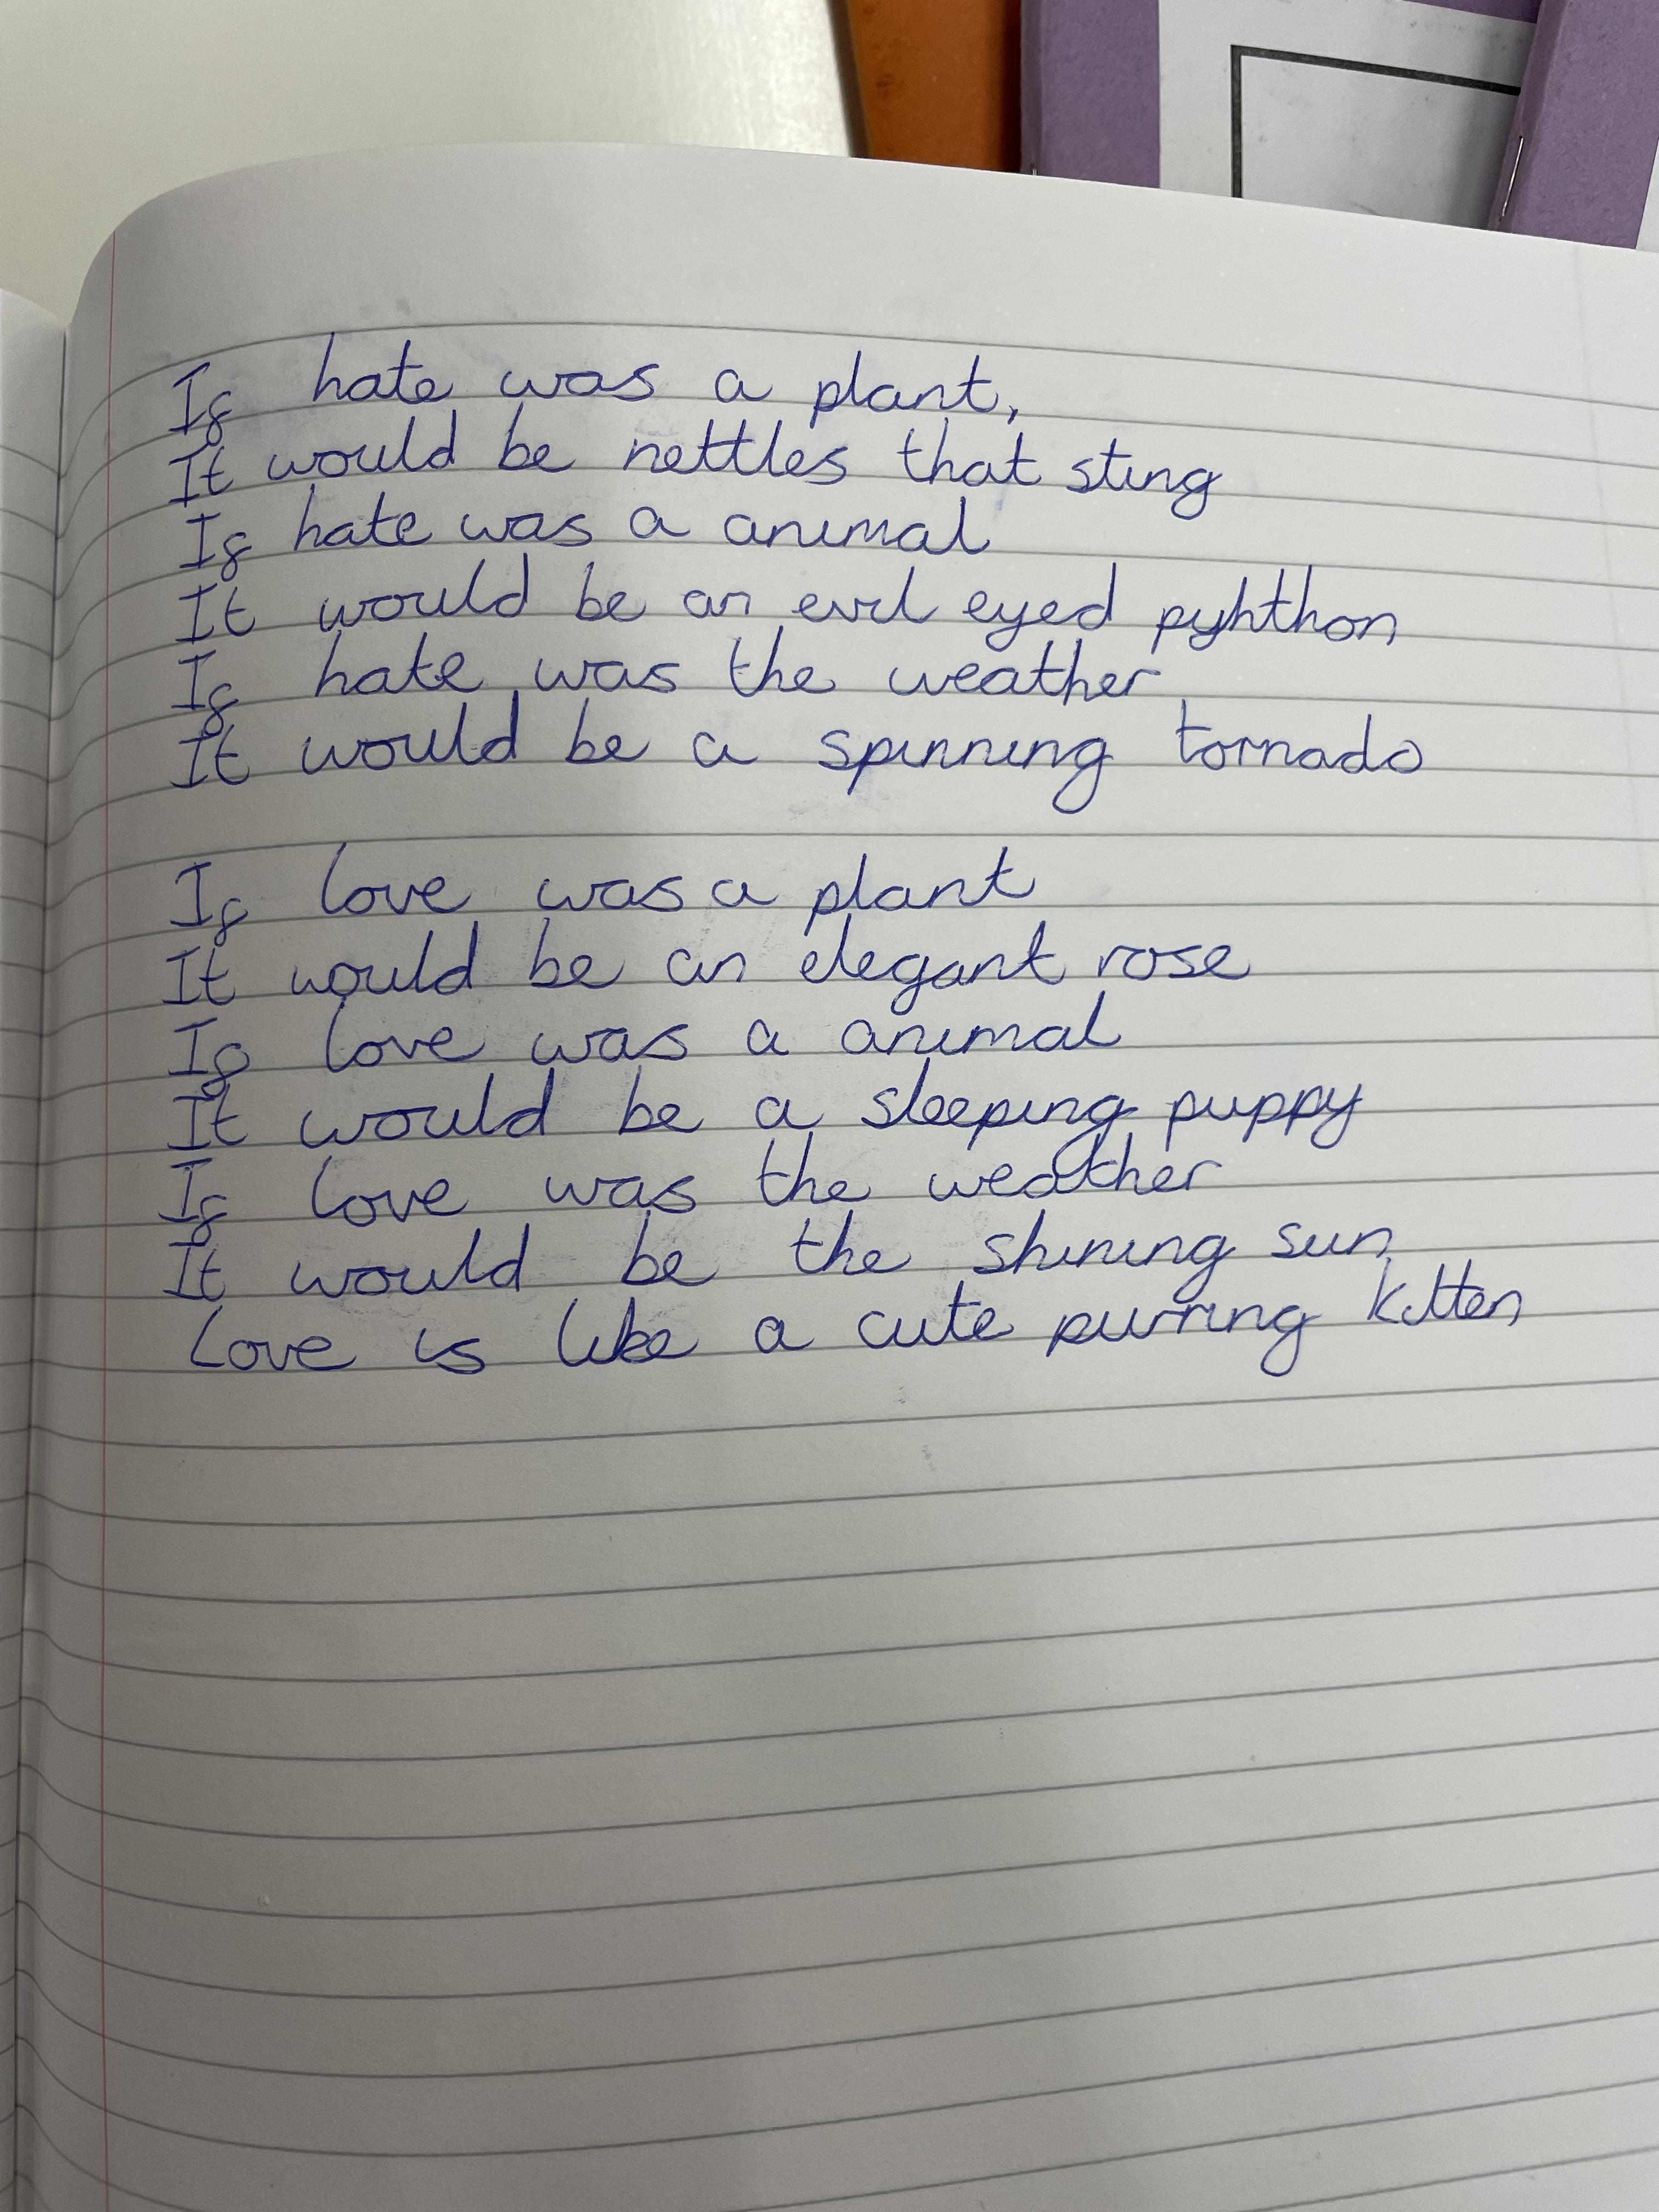 If hate was a plant,
It would be nettles that sting
If hate was a animal
It would be an evil eyed pyhthon
If hate was the weather
It would be a spinning tornado
If love was a plant
It would be an elegant rose
If love was a animal
It would be a sleeping puppy
If love was the weather
It would be the shining sun
Love is like a cute purring kitten